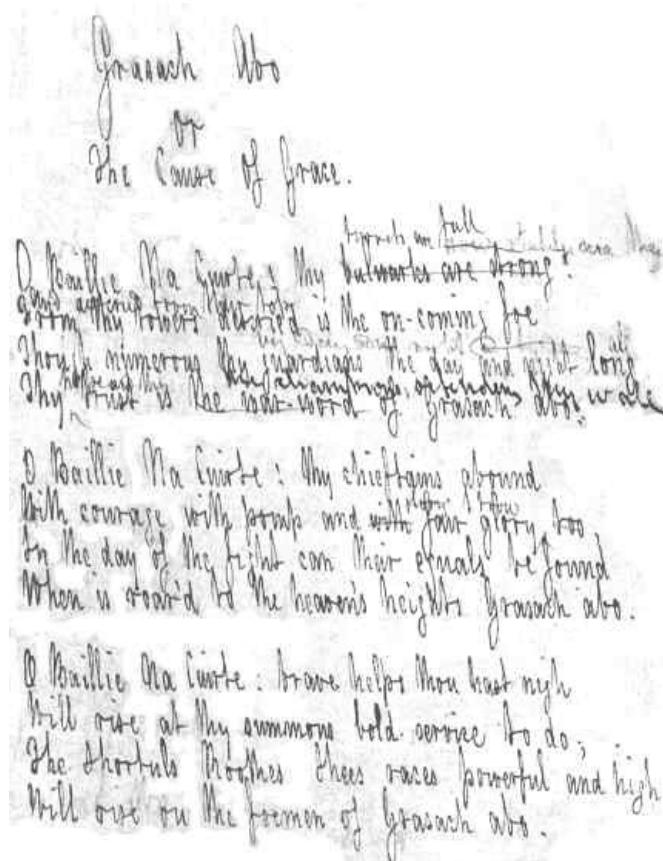 Grasach Abo
or
The Cause of Grace.
full
O Baillie Na Cuirte: thy bulwarks are strong.
From thy towers descried is the on-coming foe
Though numerous thy guardians the day and night long
Thy trust is the war-word of Grasach abo.
O Baillie Na Cuirte: thy chieftains abound
With courage with pomp and with fair glory too
In the day of the fight can their equals be found
When is roar'd to the heaven's heights Grasach abo.
O Baillie Na Cuirte: brave helps thou hast nigh
Will rise at thy summons bold service to do;
The races powerful and high
Will rise on the foemen of Grasach abo.